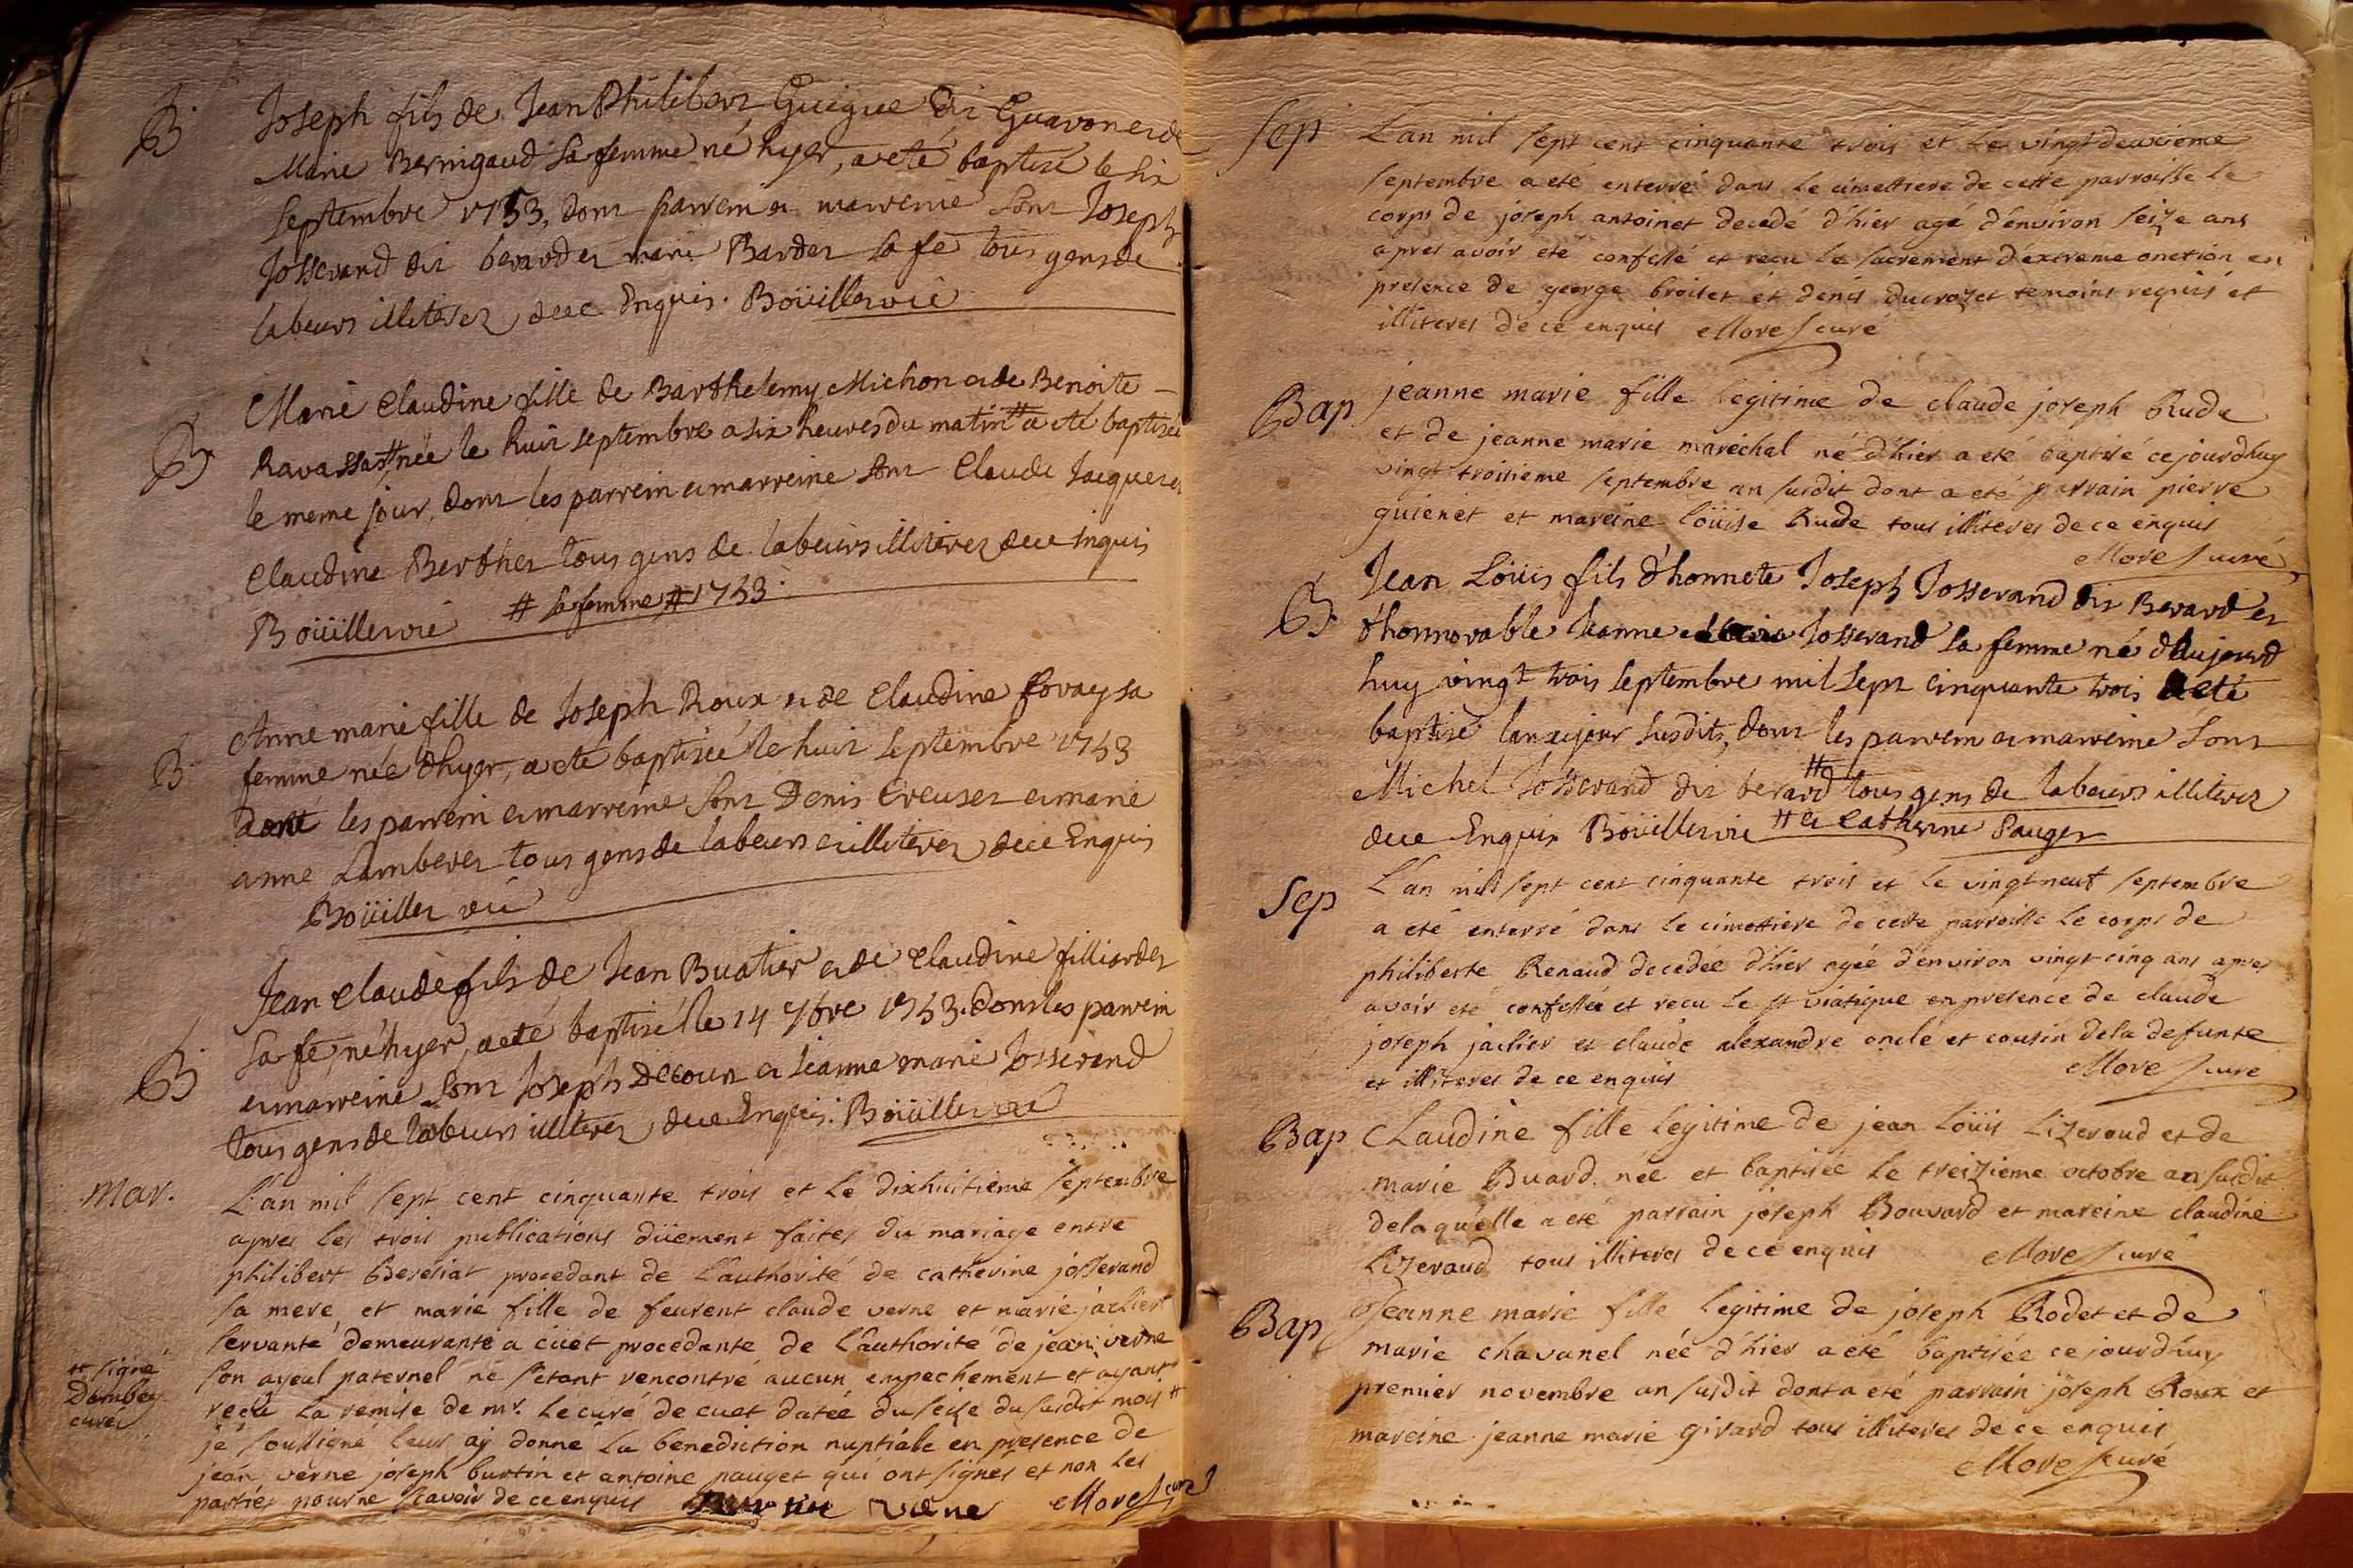 B. Joseph fils de Jean Philibert Guigue dit Guavon et de
Marie Bernigaud sa femme né hyer, a eté baptisé le six
septembre 1753, dont parrein et marreine sont Joseph
Josserand dit berard et marie Bardet sa fe tous gens de
labeurs illiterez de ce Enquis. Boüillet vic
Marie Claudine fille de Barthelemy Michon et de Benoite
B. Ravassa # née le huit septembre a six heures du matin # a eté baptisée
le meme jour, dont les parrein et marreine sont Claude Jacquet et
Claudine Berthet tous gens de labeurs illiterez de ce Enquis
Boüillet vic # sa femme # 1753
Anne marie fille de Joseph Roux et de Claudine Foray sa
B. femme née d'hyer, a eté baptisée le huit septembre 1753
dont les parrein et marreine sont Denis Creuset et marie
anne Lamberet tous gens de labeurs et illiterez de ce Enquis
Boüillet vic
Jean Claude fils de Jean Buatier et de Claudine filliardet
B. sa fe, né hyer, a eté baptisé le 14 7bre 1753. dont les parrein
et marreine sont Joseph Decour et Jeanne marie Josserand
tous gens de labeurs illiterez de ce Enquis. Boüillet vic
Mar. L'an mil sept cent cinquante trois et le dixhuitieme septembre
apres les trois publications düement faites du mariage entre
philibert Bereziat procedant de l'authorité de catherine josserand
sa mere, et marie fille de feurent claude verne et marie jaclier
servante demeurante a cuet procedante de l'authorité de jean verne
son ayeul paternel ne s'etant rencontré aucun empechement et ayant
reçu la remise de mr. le curé de cuet datée du seize du susdit mois #
# signé
Dombey
curé
je soussigné leur aÿ donné la benediction nuptiale en presence de
jean verne joseph burtin et antoine pauget qui ont signés et non les
parties pour ne sçavoir de ce enquis Burtin verne Morel curé
Sep L'an mil sept cent cinquante trois et le vingt deuxieme
septembre a eté enterré dans le cimettiere de cette parroisse le
corps de joseph antoinet decedé d'hier agé d'environ seize ans
apres avoir eté confessé et recu le sacrement d'extreme onction en
presence de george broiset et denis ducrozet temoins requis et
illiteres de ce enquis Morel curé
Bap jeanne marie fille legitime de claude joseph Rude
et de jeanne marie maréchal né d'hier a eté baptisé ce jourdhuy
vingt troisieme septembre an susdit dont a eté parrain pierre
guienet et mareine loüise Rude tous illiteres de ce enquis
Morel curé
B. Jean Loüis fils d'honnete Joseph Josserand dit Berard et
d'honnorable Jeanne Josserand sa femme né d'aujourd
huy vingt trois septembre mil sept cinquante trois a eté
baptisé lan et jour susdits, dont les parrein et marreine sont
Michel Josserand dit berard # tous gens de labeurs illiterez
de ce Enquis Boüillet vic # et Catherine Pauget
Sep L'an mil sept cent cinquante trois et le vingt neuf septembre
a eté enterré dans le cimettiere de cette parroisse le corps de
philiberte Renaud decedée d'hier agée d'environ vingt-cinq ans apres
avoir eté confessée et recu le st viatique en presence de claude
joseph jaclier et claude alexandre oncle et cousin de la defunte
et illiteres de ce enquis Morel curé
Bap Claudine fille legitime de jean loüis Lizeraud et de
marie Buard née et baptisée le treizieme octobre an susdit
delaquelle a eté parrain joseph Bouvard et mareine claudine
Lizeraud tous illiteres de ce enquis Morel curé
Bap Jeanne marie fille legitime de joseph Rodet et de
marie chavanel née d'hier a eté baptisée ce jourd'huy
premier novembre an susdit dont a eté parrain joseph Roux et
mareine jeanne marie girard tous illiteres de ce enquis
Morel curé